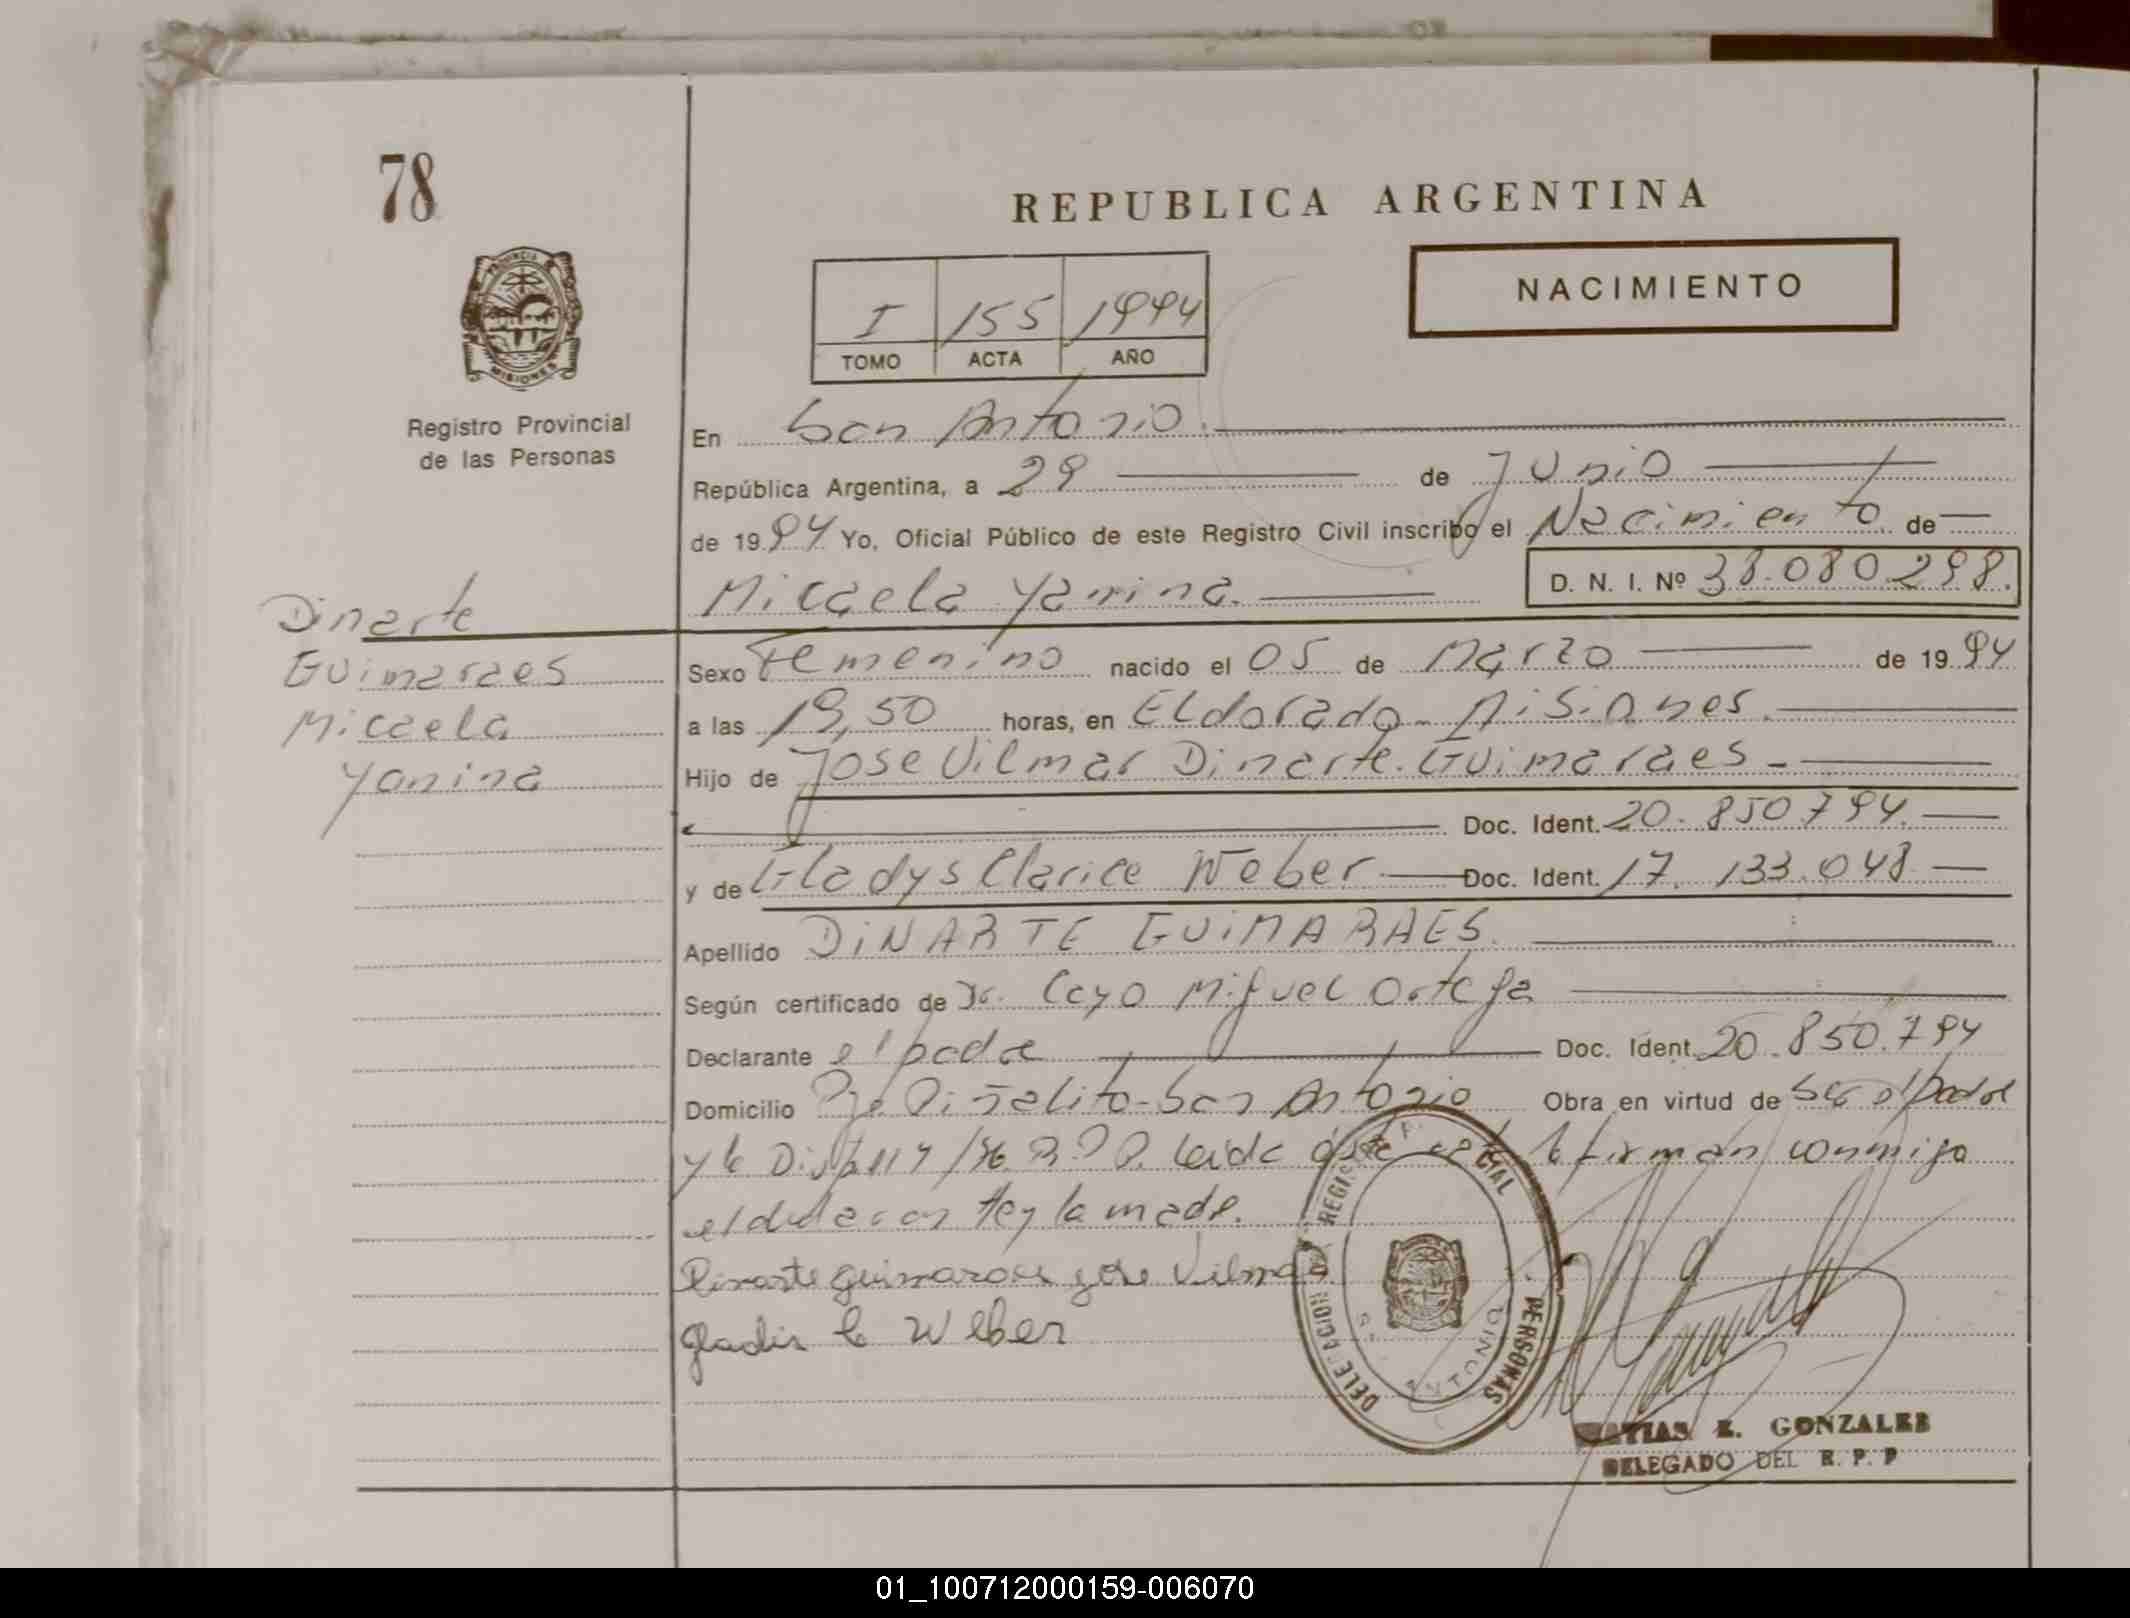 78
REPUBLICA ARGENTINA
NACIMIENTO
I 155 1994
TOMO ACTA AÑO
PROVINCIA DE
MISIONES
Registro Provincial
de las Personas
En San Antonio.
República Argentina, a 29 de Junio
de 1994 Yo, Oficial Público de este Registro Civil inscribo el Nacimiento de
Micaela Yanina. D. N. I. Nº 38.080.298.
Dinarte
Guimaraes
Micaela
Yanina
Sexo Femenino nacido el 05 de Marzo de 1994
a las 19,50 horas, en Eldorado - Misiones.
Hijo de Jose Vilmar Dinarte Guimaraes -
Doc. Ident. 20.850.794.
y de Gladys Clarice Weber Doc. Ident. 17.133.048
Apellido DINARTE GUIMARAES
Según certificado de Dr. Cayo Miguel Ortega
Declarante el padre Doc. Ident. 20.850.794
Domicilio Pje Piñalito - San Antonio Obra en virtud de ser el padre
y la Disp. R.P.P. Leida el acta la firman conmigo
el declarante y la madre.
Dinarte Guimaraes Jose Vilmar
Gladis C Weber
DELEGACION REGISTRO PROVINCIAL PERSONAS
S. ANTONIO
MATIAS E. GONZALES
DELEGADO DEL R. P. P
01_100712000159-006070